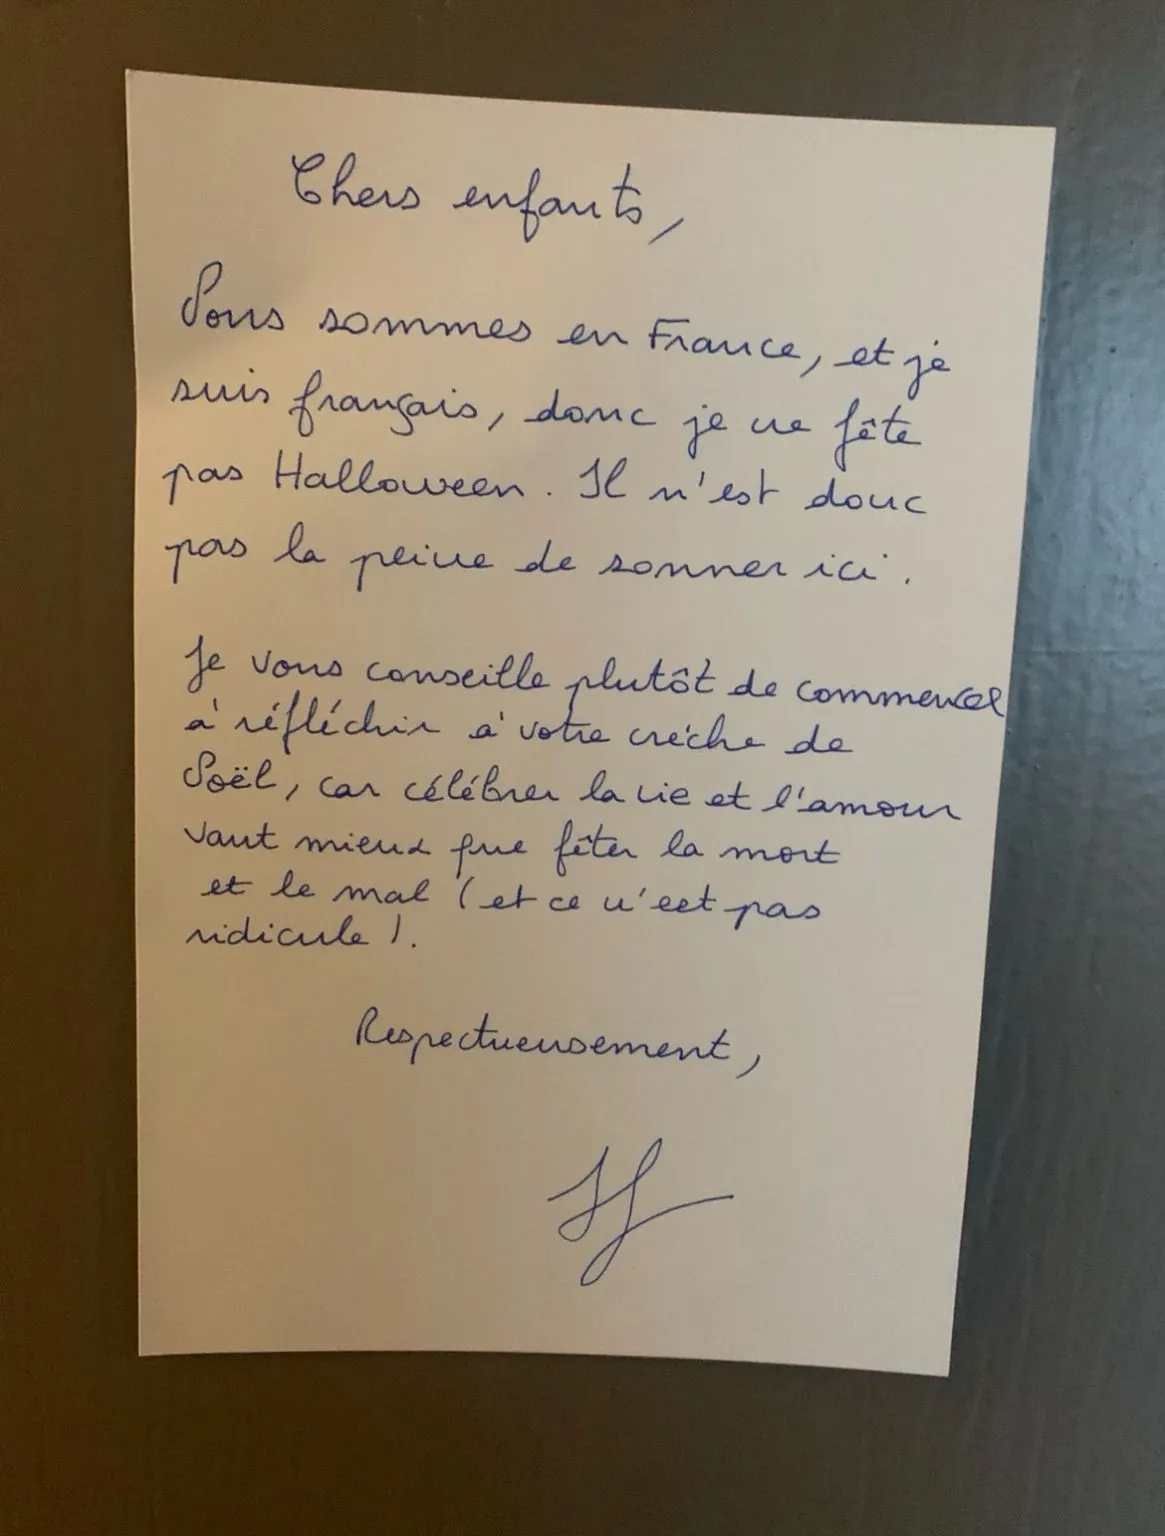 Chers enfants,
Nous sommes en France, et je
suis français, donc je ne fête
pas Halloween. Il n'est donc
pas la peine de sonner ici.
Je vous conseille plutôt de commencer
à réfléchir à votre crèche de
Noël, car célébrer la vie et l'amour
vaut mieux que fêter la mort
et le mal (et ce n'est pas
ridicule).
Respectueusement,